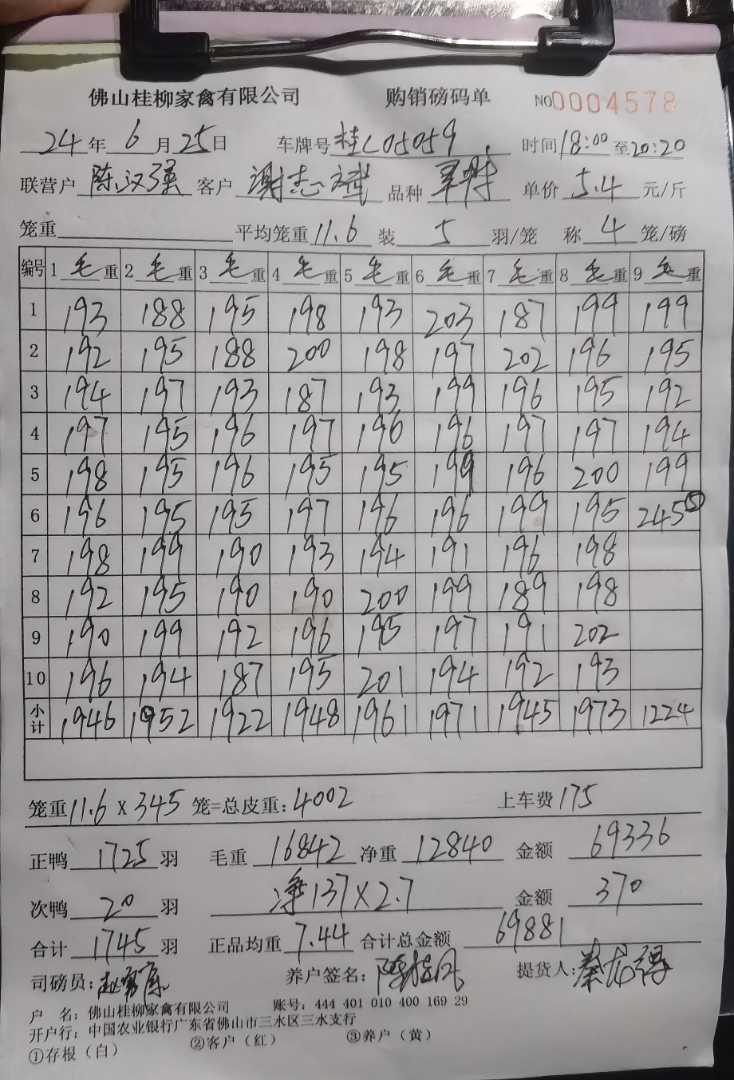 佛山桂柳家禽有限公司 购销磅码单 NO0004578
24年6月25日 车牌号桂L05059 时间18:00至20:20
联营户陈汉强 客户谢志斌 品种 单价5.4元/斤
笼重 平均笼重11.6 装5羽/笼 称4笼/磅
编号 1毛重 2毛重 3毛重 4毛重 5毛重 6毛重 7毛重 8毛重 9毛重
1 193 188 195 198 193 203 187 199 199
2 192 195 188 200 198 197 202 196 195
3 194 197 193 187 193 199 196 195 192
4 197 195 196 197 196 196 197 197 194
5 198 195 196 195 195 199 196 200 199
6 196 195 195 197 196 196 199 195 245⑤
7 198 199 190 193 194 191 196 198
8 192 195 190 190 200 199 189 198
9 190 199 192 196 195 197 191 202
10 196 194 187 195 201 194 192 193
小计 1946 1952 1922 1948 1961 1971 1945 1973 1224
笼重11.6X345笼=总皮重:4002 上车费175
正鸭1725羽 毛重16842净重12840 金额69336
次鸭20羽 净137X2.7 金额370
合计1745羽 正品均重7.44合计总金额69881
司磅员: 养户签名:陈桂凤 提货人:
户 名:佛山桂柳家禽有限公司 账号:444 401 010 400 169 29
开户行:中国农业银行广东省佛山市三水区三水支行
①存根(白) ②客户(红) ③养户(黄)